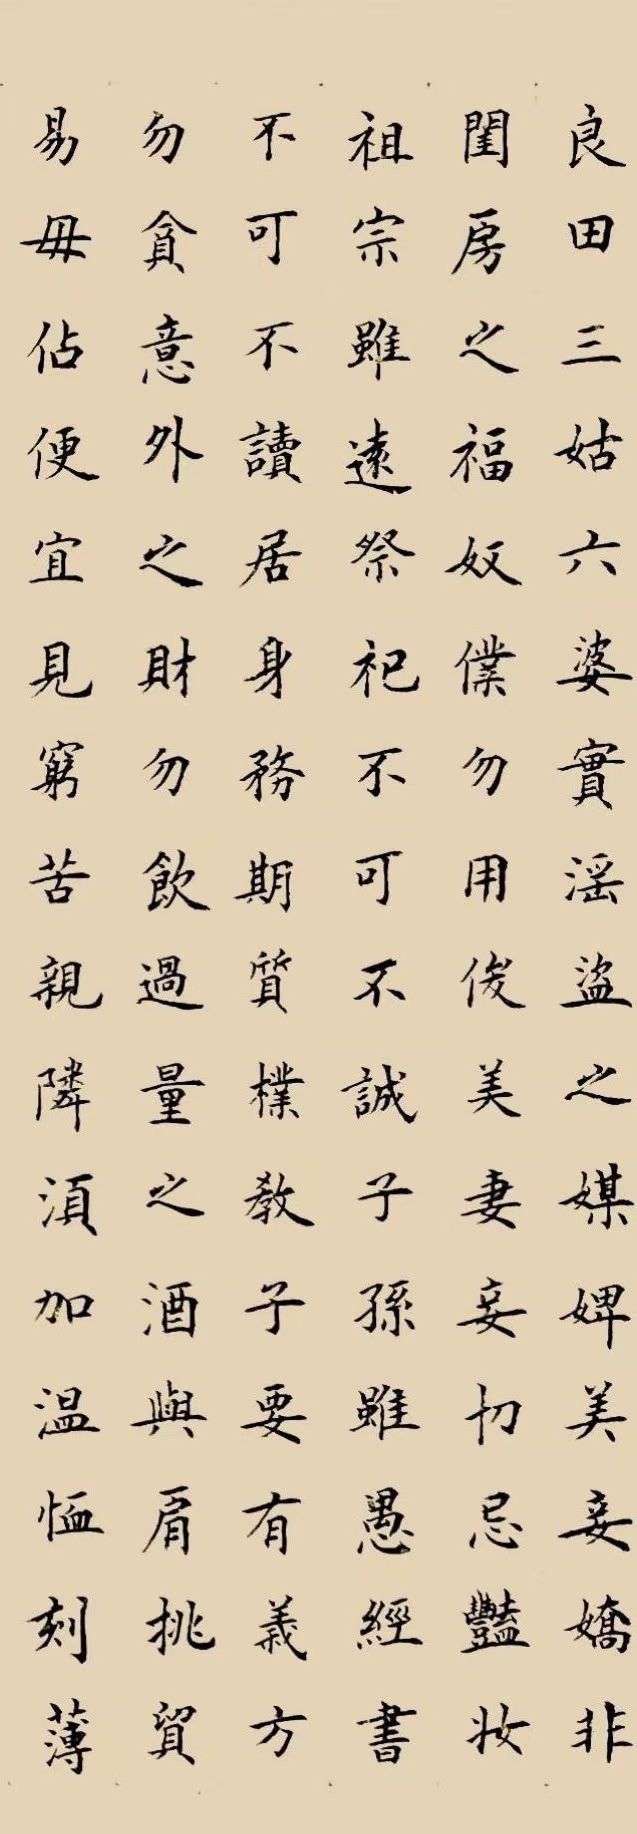 良田三姑六婆實淫盜之媒婢美妾嬌非
閨房之福奴僕勿用俊美妻妾切忌豔妝
祖宗雖遠祭祀不可不誠子孫雖愚經書
不可不讀居身務期質樸教子要有義方
勿貪意外之財勿飲過量之酒與肩挑貿
易毋佔便宜見窮苦親隣須加温恤刻薄